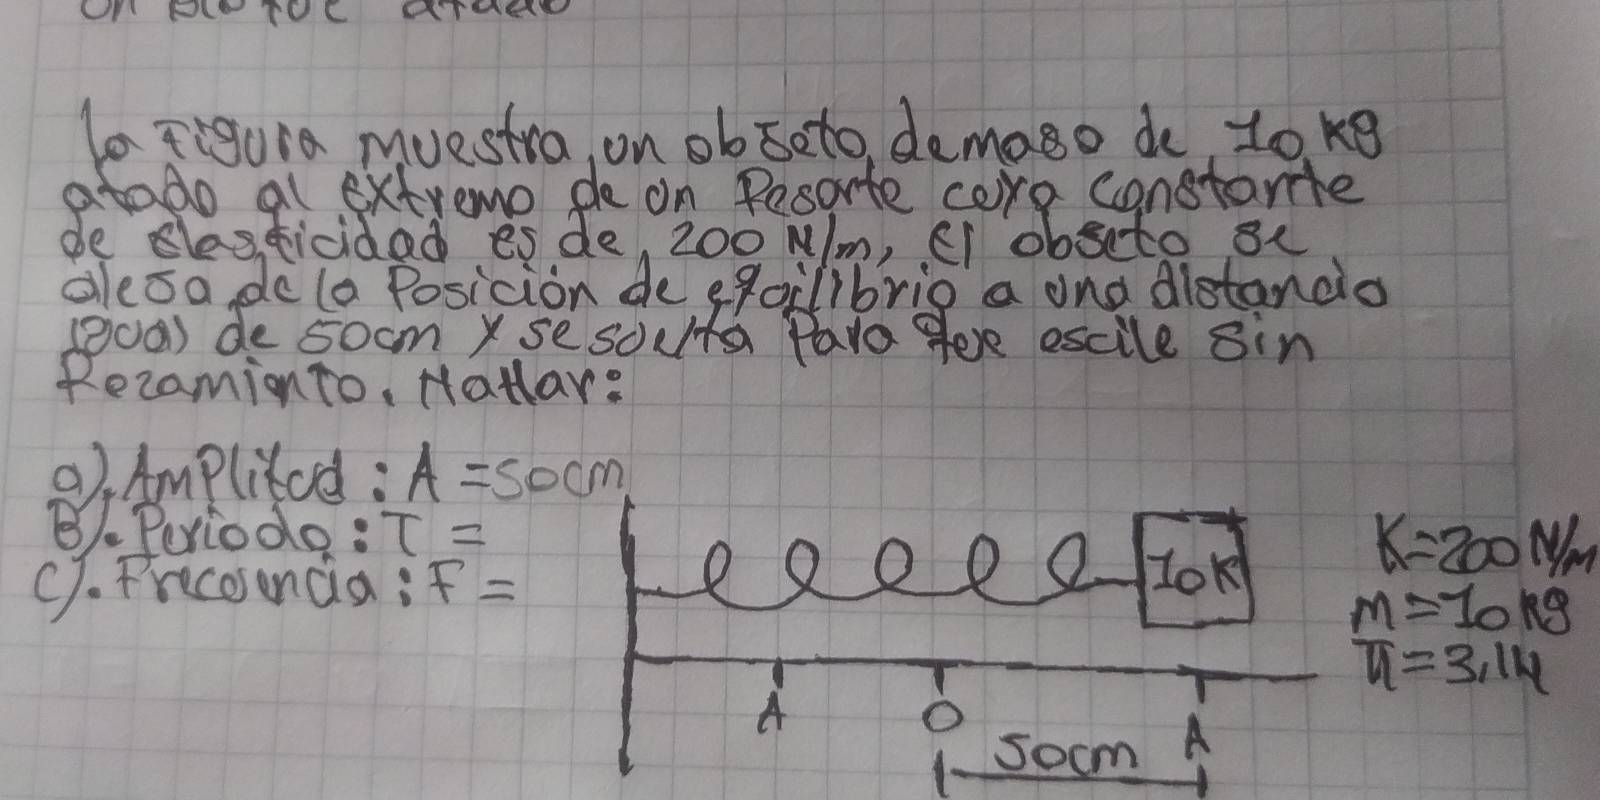 la Figura muestra, un obJeto, de maso de 10 Kg
atado al extremo de un Resorte cuya constante
de elasticidad es de, 200 N/m, el objeto se
aleJa de la Posición de equilibrio a una distancia
igual de 50cm y se suelta Para que oscile sin
Rozamiento. Hallar:
a). Amplitud : A = 50cm
B). Periodo : T =
C). Frecuencia : F =
10K
K=200 N/m
m=10 kg
π=3,14
A
O
A
50cm